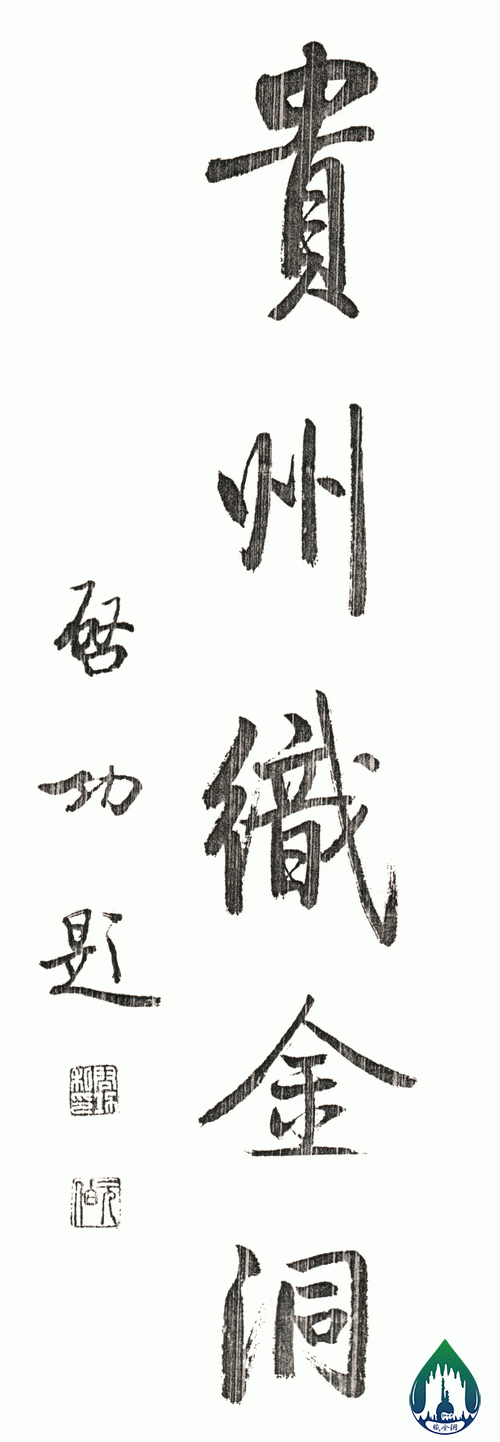 貴州織金洞
啓功題
織金洞